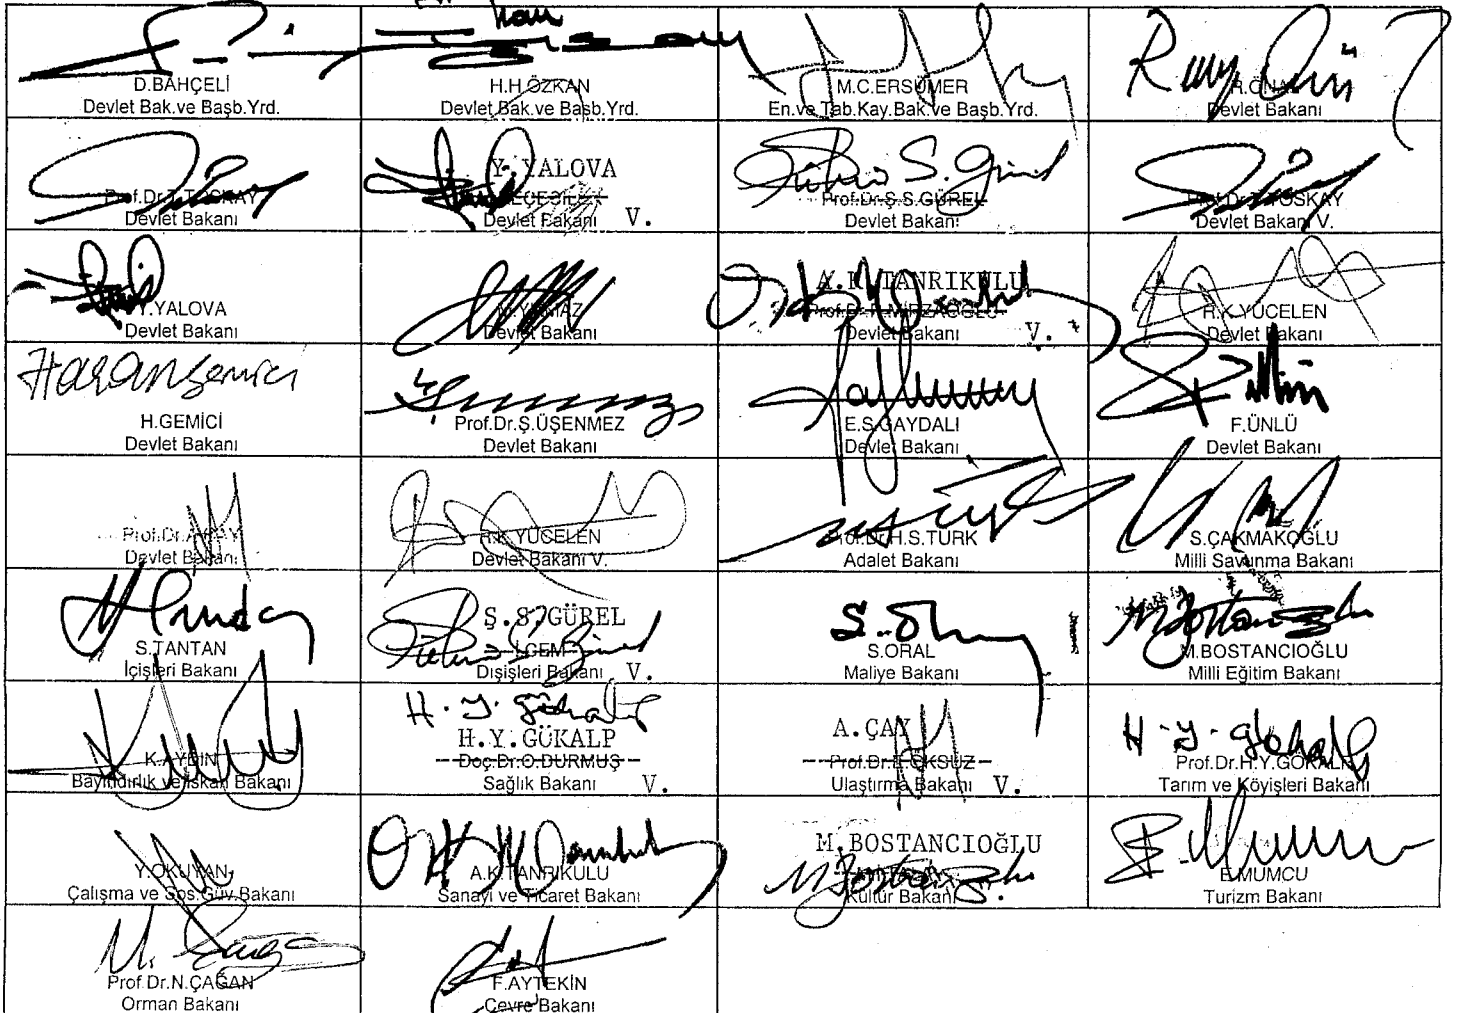 D.BAHÇELİ
Devlet Bak.ve Başb.Yrd.
H.H.ÖZKAN
Devlet Bak.ve Başb.Yrd.
M.C.ERSÜMER
En.ve Tab.Kay.Bak.ve Başb.Yrd.
R.ÖNAL
Devlet Bakanı
Prof.Dr.T.TOSKAY
Devlet Bakanı
Y. YALOVA
Devlet Bakanı V.
Prof.Dr.Ş.S.GÜREL
Devlet Bakanı
Prof.Dr.T.TOSKAY
Devlet Bakanı V.
Y.YALOVA
Devlet Bakanı
M.YILMAZ
Devlet Bakanı
A.K.TANRIKULU
Prof.Dr.R.MİRZAOĞLU
Devlet Bakanı V.
R.K.YÜCELEN
Devlet Bakanı
Hasan Gemici
H.GEMİCİ
Devlet Bakanı
Prof.Dr.Ş.ÜŞENMEZ
Devlet Bakanı
E.S.GAYDALI
Devlet Bakanı
F.ÜNLÜ
Devlet Bakanı
Prof.Dr.A.ÇAY
Devlet Bakanı
R.K.YÜCELEN
Devlet Bakanı V.
Prof.Dr.H.S.TÜRK
Adalet Bakanı
S.ÇAKMAKOĞLU
Milli Savunma Bakanı
S.TANTAN
İçişleri Bakanı
Ş.S.GÜREL
İ.CEM
Dışişleri Bakanı V.
S.ORAL
Maliye Bakanı
M.BOSTANCIOĞLU
Milli Eğitim Bakanı
K.AYDIN
Bayındırlık ve İskan Bakanı
H.Y. Gökalp
H.Y.GÜKALP
Doç.Dr.O.DURMUŞ
Sağlık Bakanı V.
A.ÇAY
Prof.Dr.E.ÖKSÜZ
Ulaştırma Bakanı V.
H.Y. Gökalp
Prof.Dr.H.Y.GÖKALP
Tarım ve Köyişleri Bakanı
Y.OKUYAN
Çalışma ve Sos.Güv.Bakanı
A.K.TANRIKULU
Sanayi ve Ticaret Bakanı
M.BOSTANCIOĞLU
Kültür Bakanı
E.MUMCU
Turizm Bakanı
Prof.Dr.N.ÇAĞAN
Orman Bakanı
F.AYTEKİN
Çevre Bakanı